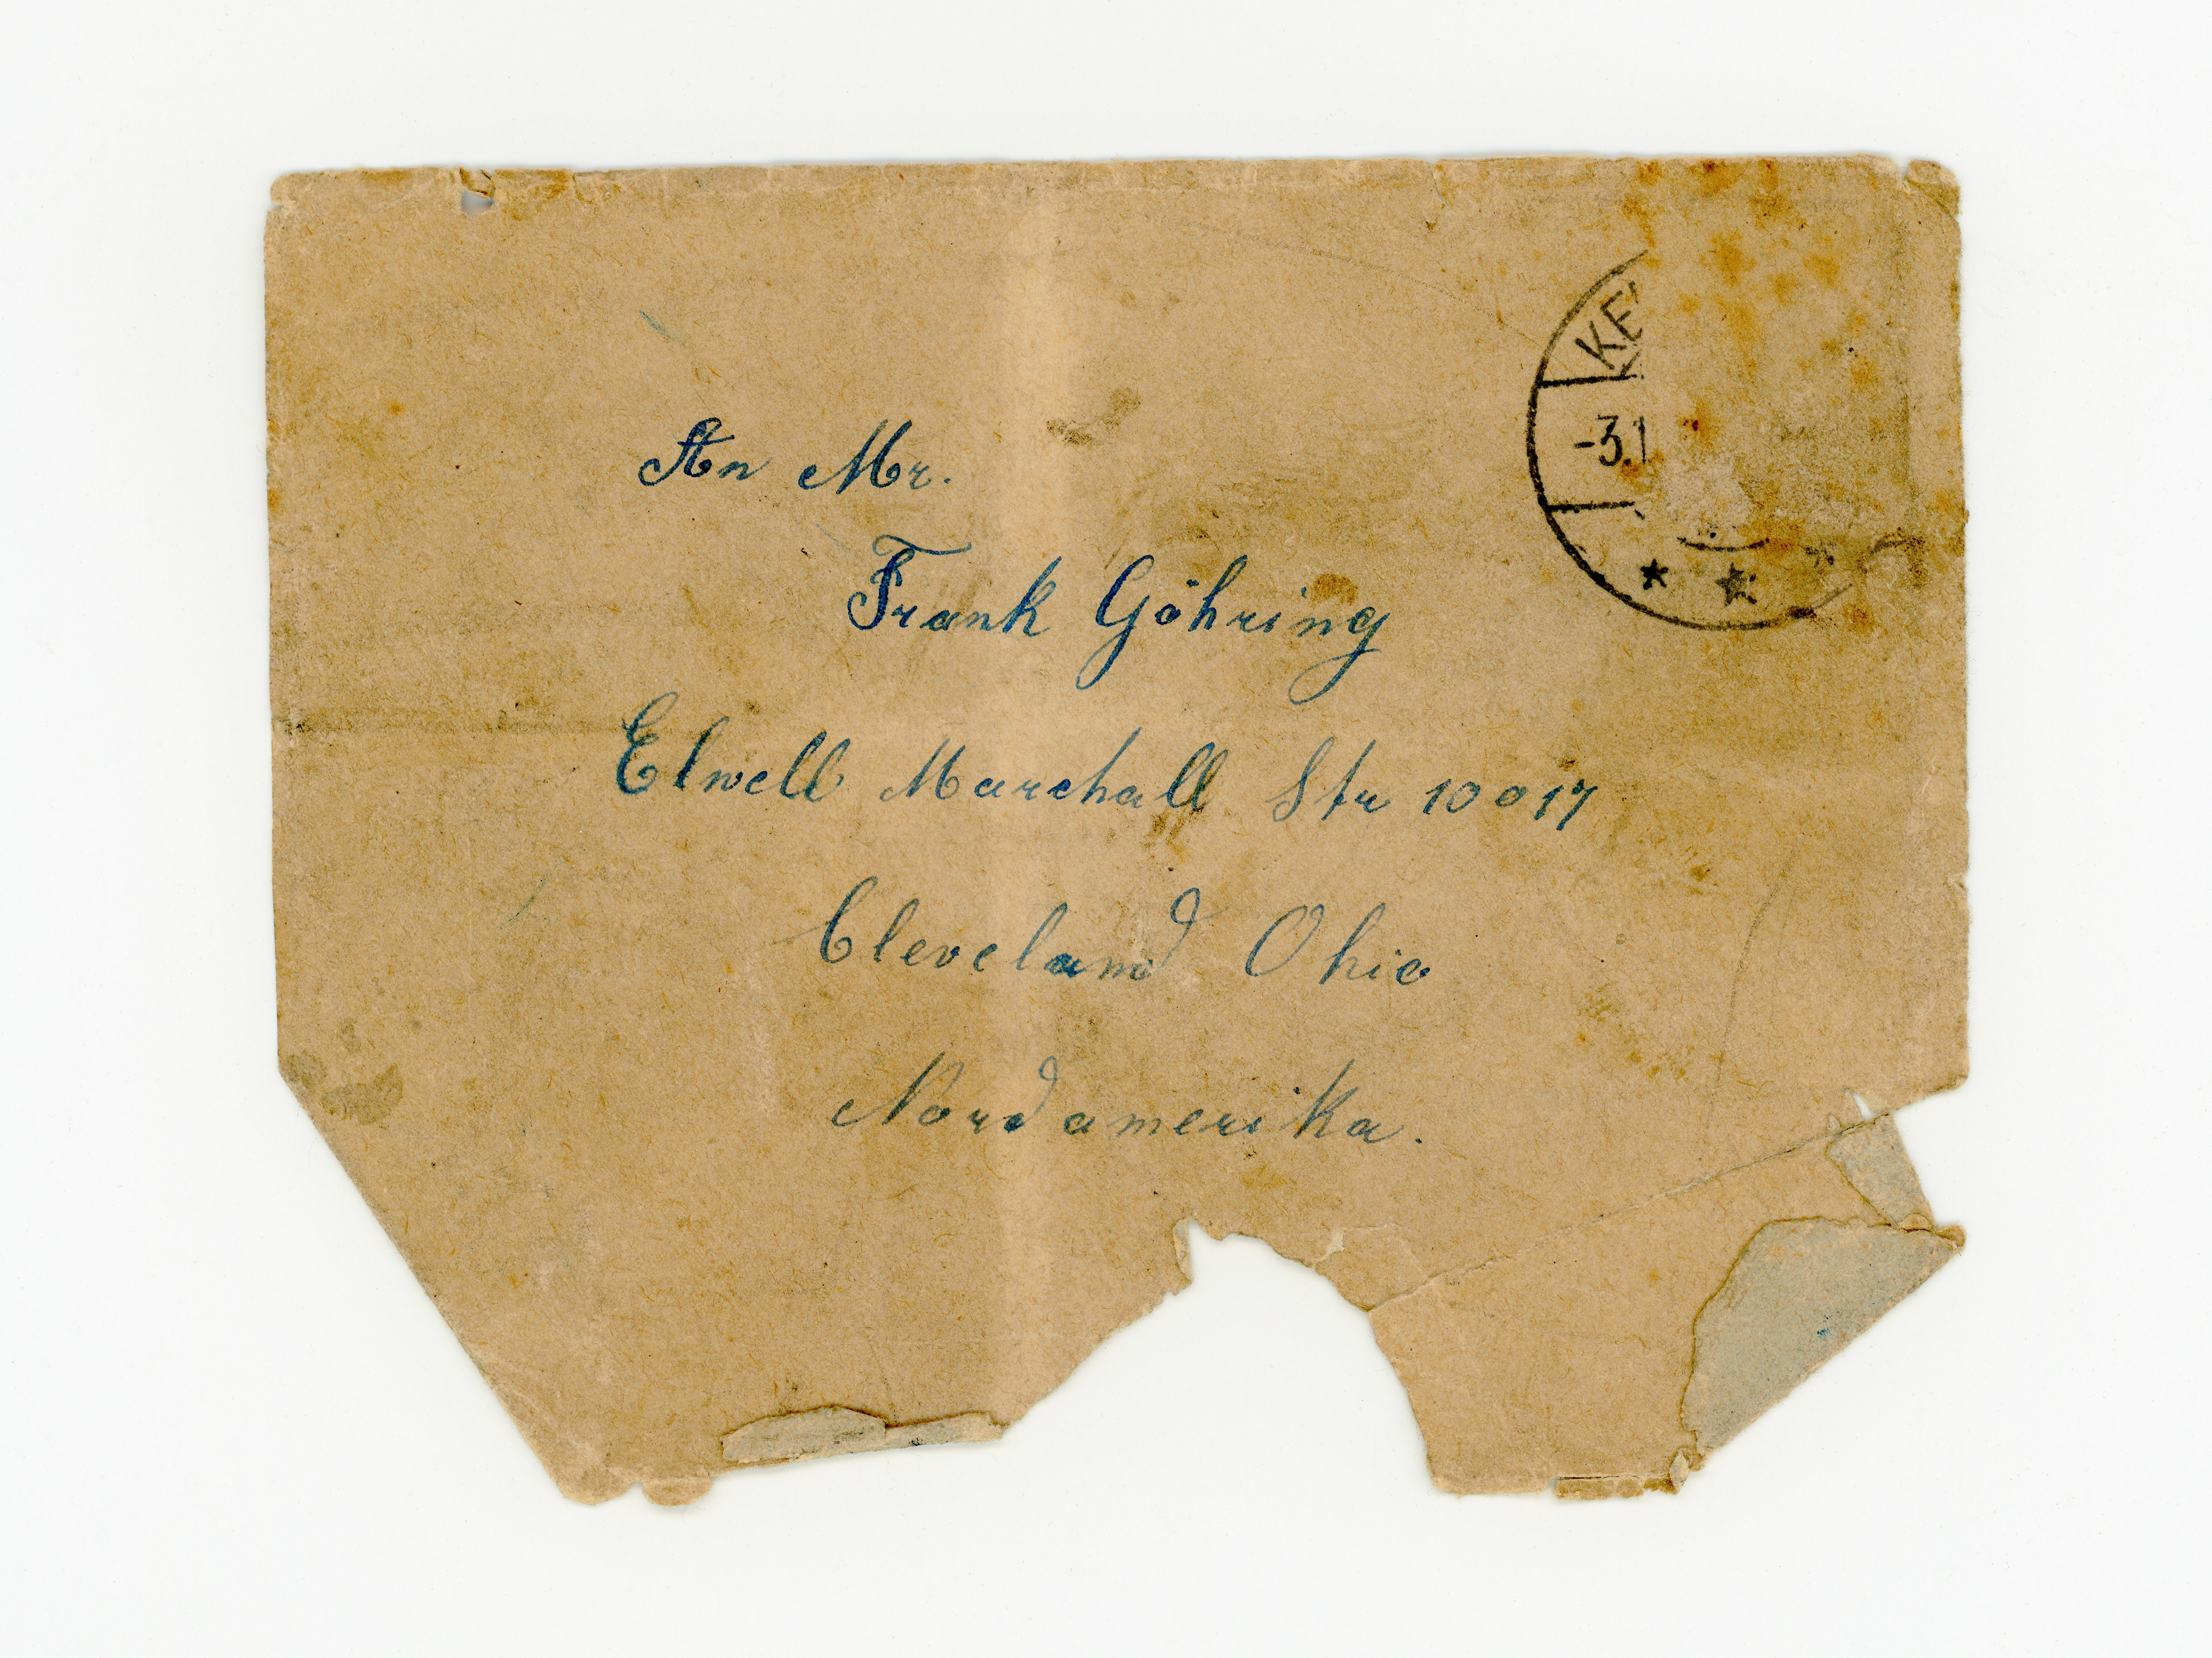 KE
-3.1
An Mr.
Frank Göhring
Elwell Marchall Str 10017
Cleveland Ohio
Nordamerika.